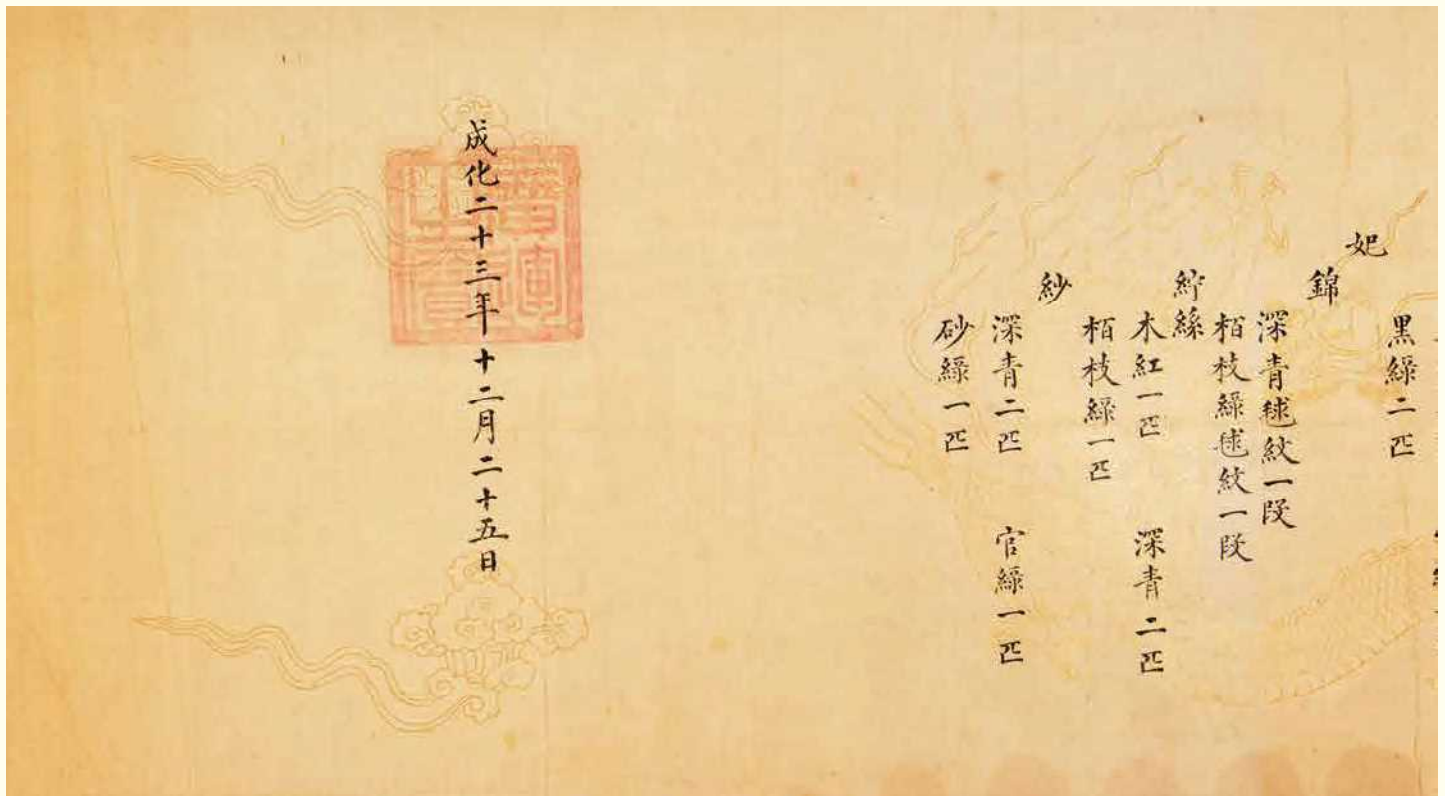 黑綠二匹
妃
錦
深青毬紋一段
栢枝綠毬紋一段
紵絲
木紅一匹 深青二匹
栢枝綠一匹
紗
深青二匹 官綠一匹
砂綠一匹
成化二十三年十二月二十五日
廣運之寶